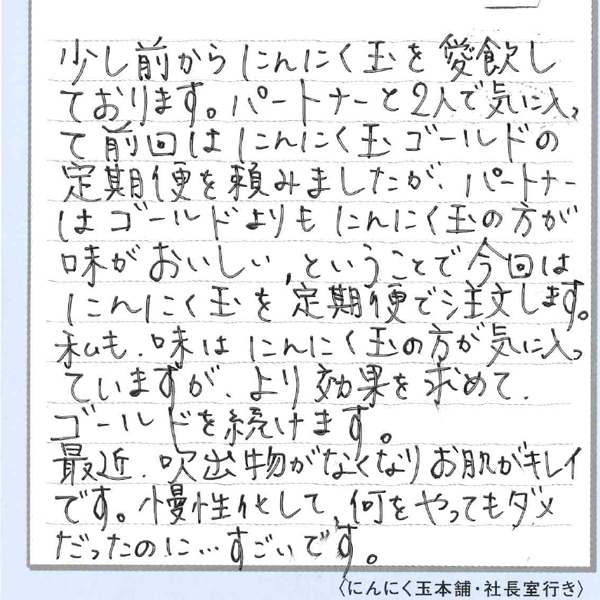 少し前からにんにく玉を愛飲し
ております。パートナーと2人で気に入っ
て前回はにんにく玉ゴールドの
定期便を頼みましたが、パートナー
はゴールドよりもにんにく玉の方が
味がおいしい、ということで今回は
にんにく玉を定期便で注文します。
私も、味はにんにく玉の方が気に入っ
ていますが、より効果を求めて、
ゴールドを続けます。
最近、吹出物がなくなりお肌がキレイ
です。慢性化して、何をやってもダメ
だったのに…すごいです。
〈にんにく玉本舗・社長室行き〉